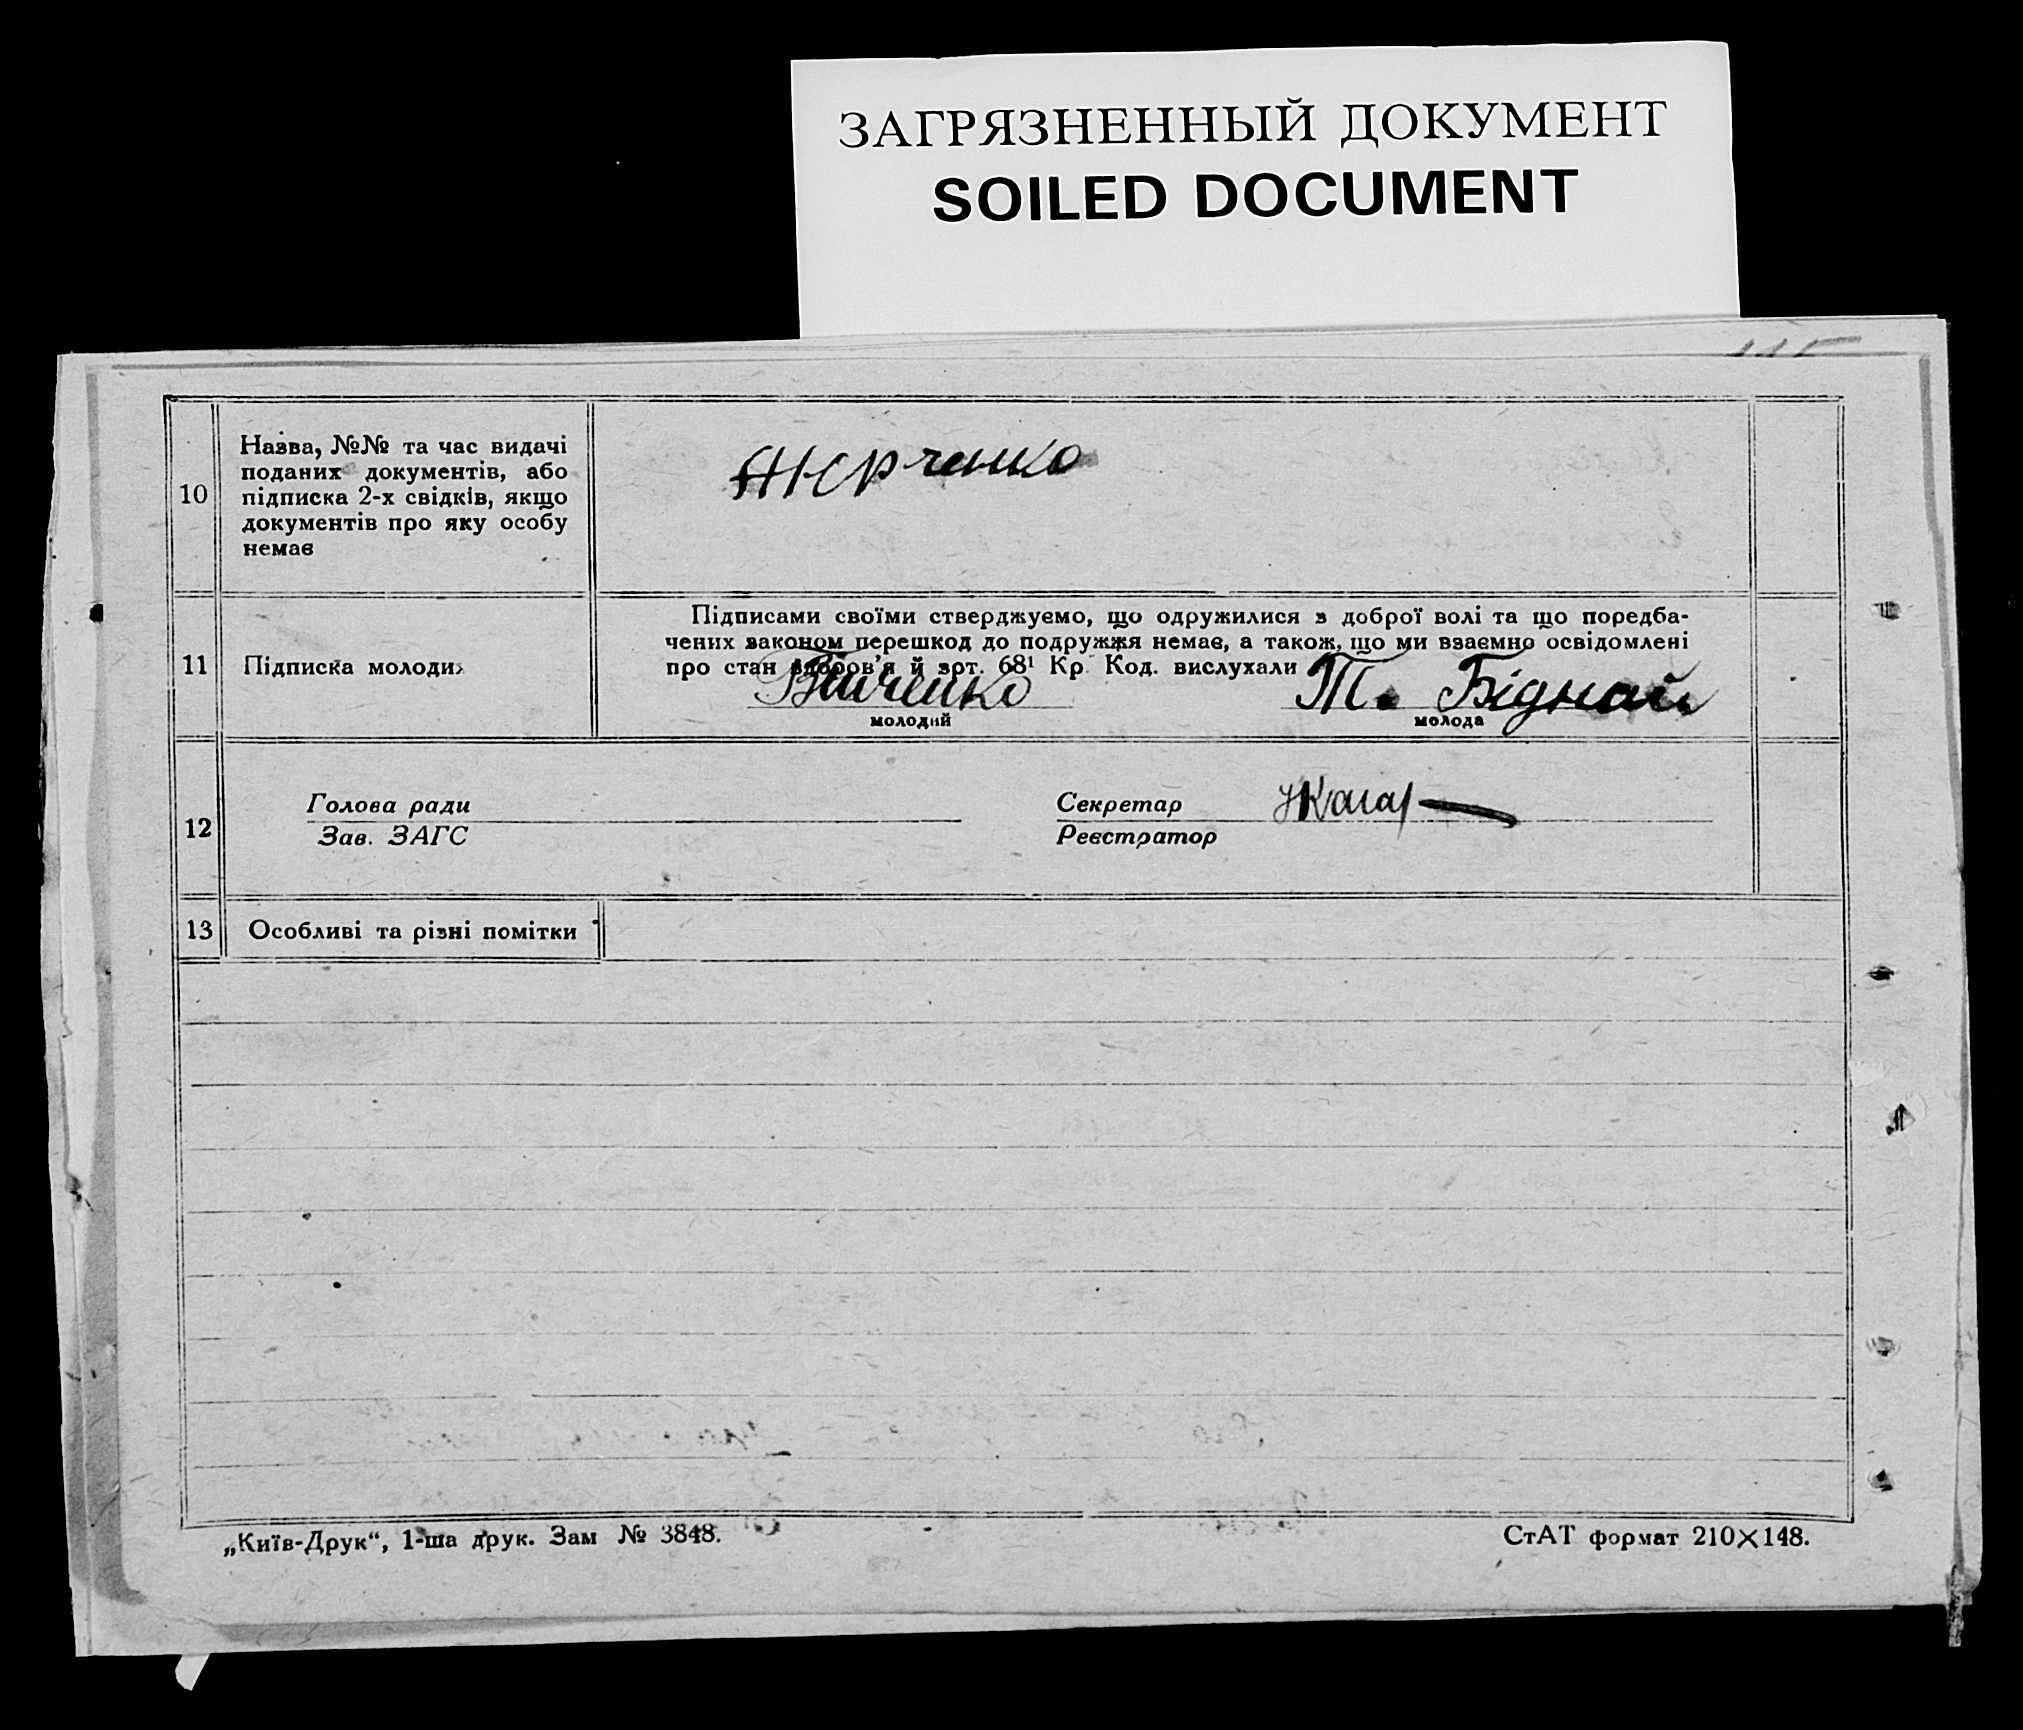 ЗАГРЯЗНЕННЫЙ ДОКУМЕНТ
SOILED DOCUMENT
10
Назва, №№ та час видачі
поданих документів, або
підписка 2-х свідків, якщо
документів про яку особу
немає
11
Підписка молодих
Підписами своїми стверджуємо, що одружилися з доброї волі та що передба-
чених законом перешкод до подружжя немає, а також, що ми взаємно освідомлені
про стан здоров'я й зрт. 68¹ Кр. Код. вислухали
Т. Бідная
молодий
молода
12
Голова ради
Зав. ЗАГС
Секретар
Реєстратор
13
Особливі та різні помітки
„Київ-Друк“, 1-ша друк. Зам № 3848.
СтАТ формат 210×148.